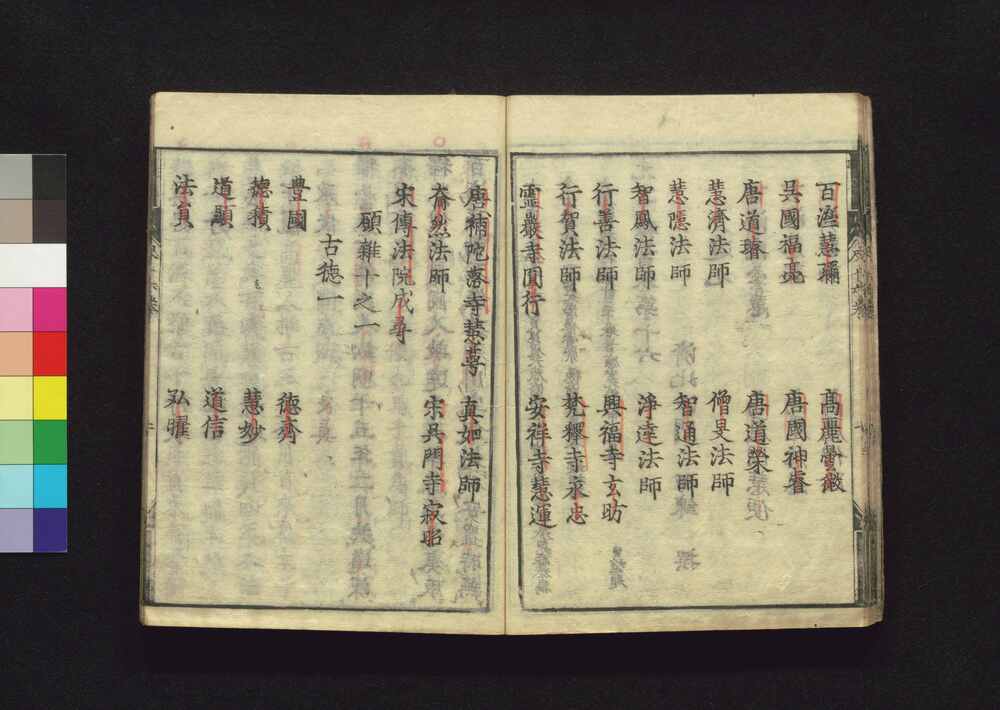 百濟慧彌　高麗雲徵
吳國福亮　唐國神睿
唐道璿　唐道榮
慧濟法師　僧旻法師
慧隱法師　智通法師
智鳳法師　淨達法師
行善法師　興福寺玄昉
行賀法師　梵釋寺永忠
靈巖寺圓行　安祥寺慧運
唐補陀落寺慧萼　真如法師
奝然法師　宋吳門寺寂昭
宋傳法院成尋
願雜十之一
古德一
豐國　德齊
德積　慧妙
道顯　道信
法員　弘曜